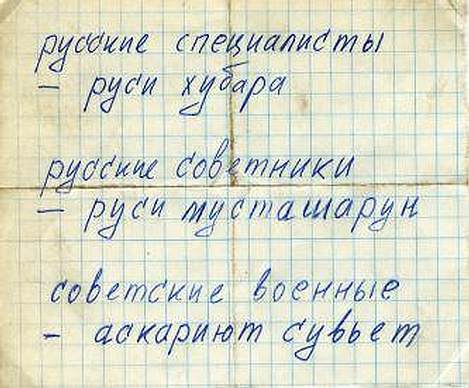 русские специалисты
– руси хубара
русские советники
– руси мусташарун
советские военные
– аскариют сувьет